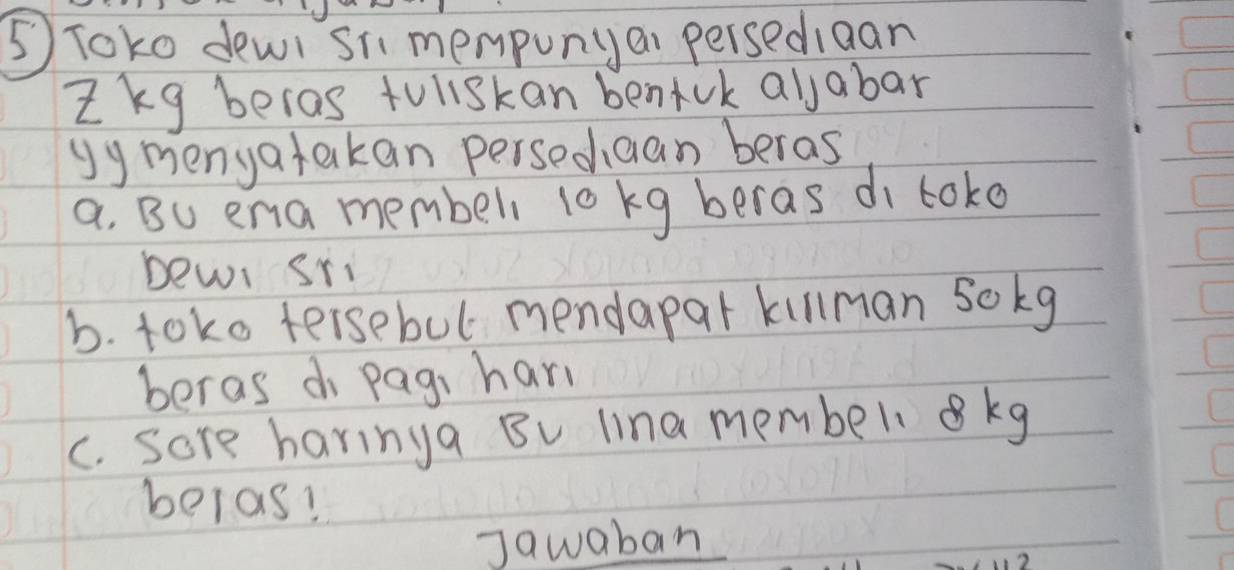 5) Toko dewi sri mempunyai persediaan
z kg beras tuliskan bentuk aljabar
yg menyatakan persediaan beras
a. Bu erna membeli 10 kg beras di toko
Dewi sri
b. toko tersebut mendapat kiriman 50 kg
beras di pagi hari
c. sore harinya Bu lina membeli 8 kg
beras!
Jawaban